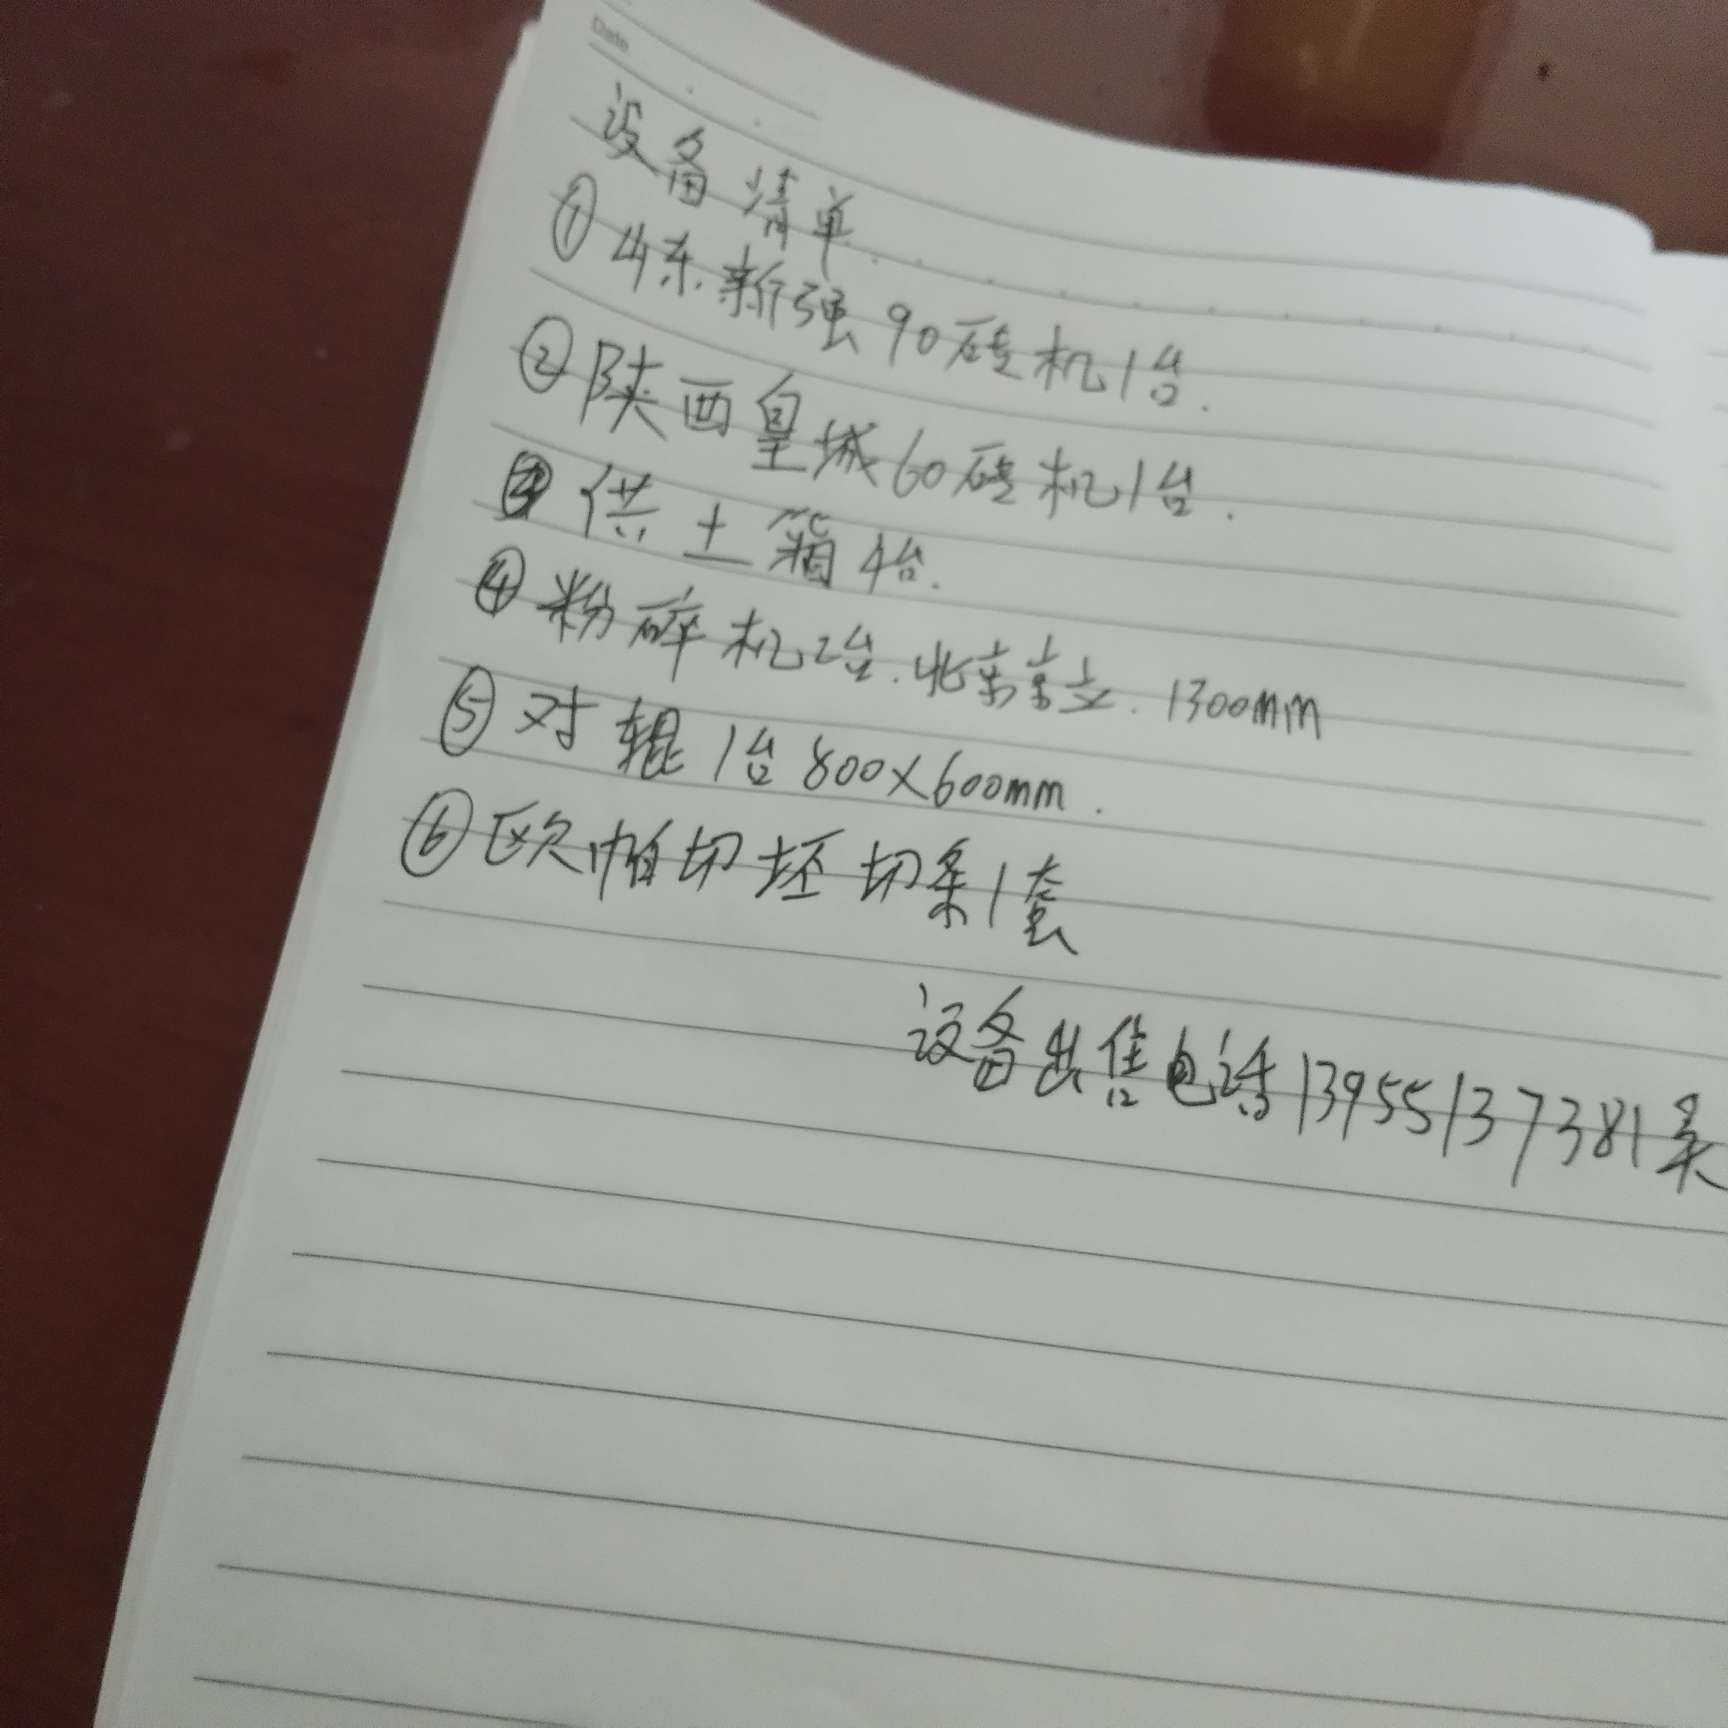 Date
设备清单
① 山东新强90砖机1台.
② 陕西皇城60砖机1台.
③ 供土箱4台.
④ 粉碎机2台.北京京立.1300mm
⑤ 对辊1台800×600mm.
⑥ 欧帕切坯切条1套
设备出售电话13955137381